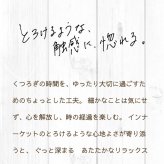 とろけるような、
触感に、惚れる。
くつろぎの時間を、ゆったり大切に過ごすた
めのちょっとした工夫。 細かなことは気にせ
ず、心を解放し、時の経過を楽しむ。 インナ
ーケットのとろけるような心地よさが寄り添
うと、ぐっと深まる あたたかなリラックス